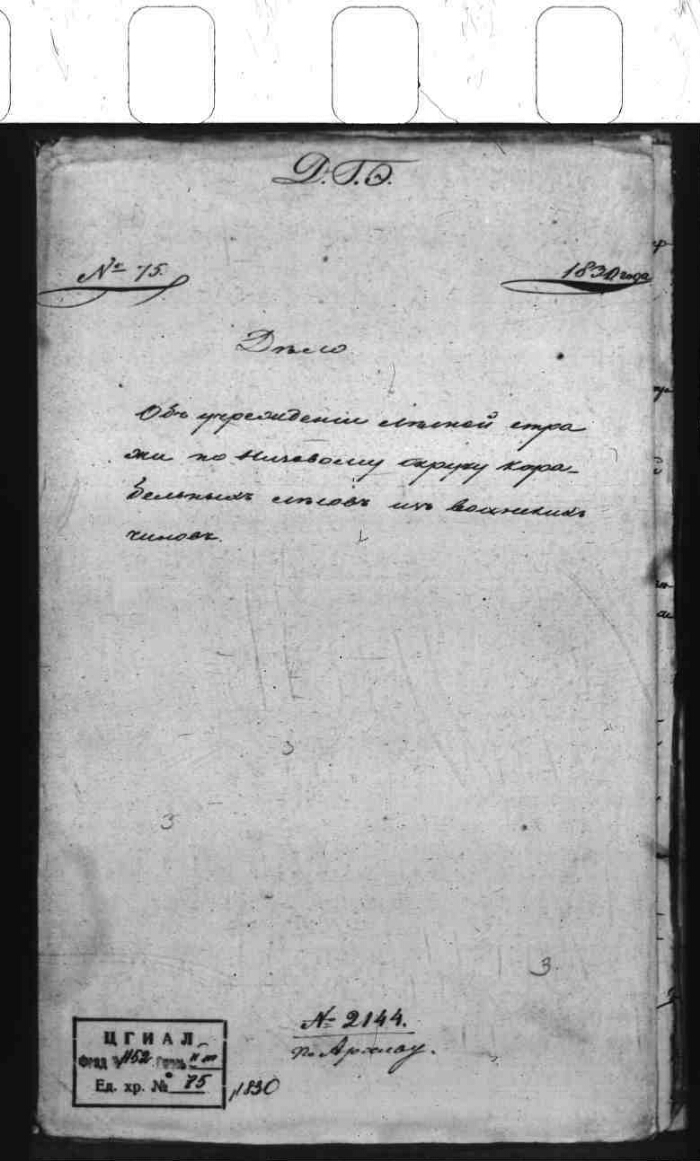 Д.Г.Э.
№ 75.
1830 года
Дѣло
Объ учрежденіи лѣсной стра
жи по Низовому округу кора-
бельныхъ лѣсовъ изъ воинскихъ
чиновъ.
3
3
3
№ 2144.
по Архиву.
ЦГИАЛ
Фонд № 1152
Ед. хр. № 75
1830